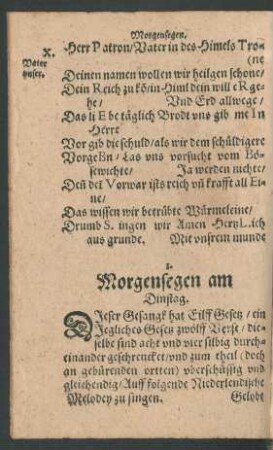 Morgensegen.
X.
Vater
vnser.
Herr Patron/Vater in des Himels Tro-
(ne
Deinen namen wollen wir heilgen schone/
Dein Reich zu kõm-Himl dein will eRge-
he/ Vnd Erd allwege/
Das li Ebe täglich Brodt uns gib me In
Herre
Vor gib die schuld/als wir dem schüldigere
VorgeBn/Las vns vorsucht vom Bö-
sewichte/ Ja werden nichte/
Deñ deĩ Vorwar ists reich vñ krafft all Ei-
ne/
Das wissen wir betrübte Würmeleine/
Drumb Singen wir Amen HerrLich
aus grunde. Mit vnsrem munde
I.
Morgensegen am
Dinstag.
DIeser Gesangk hat Eilff Gesetz/ein
Jegliches Gesetz zwölff Verse/die-
selbe sind acht vnd vier silbig durch-
einander geschrencket/vnd zum theil (doch
an gebürenden ortten) vberschüssig vnd
gleichendig/Auff folgende Niederlendische
Melodey zu singen. Gelobt